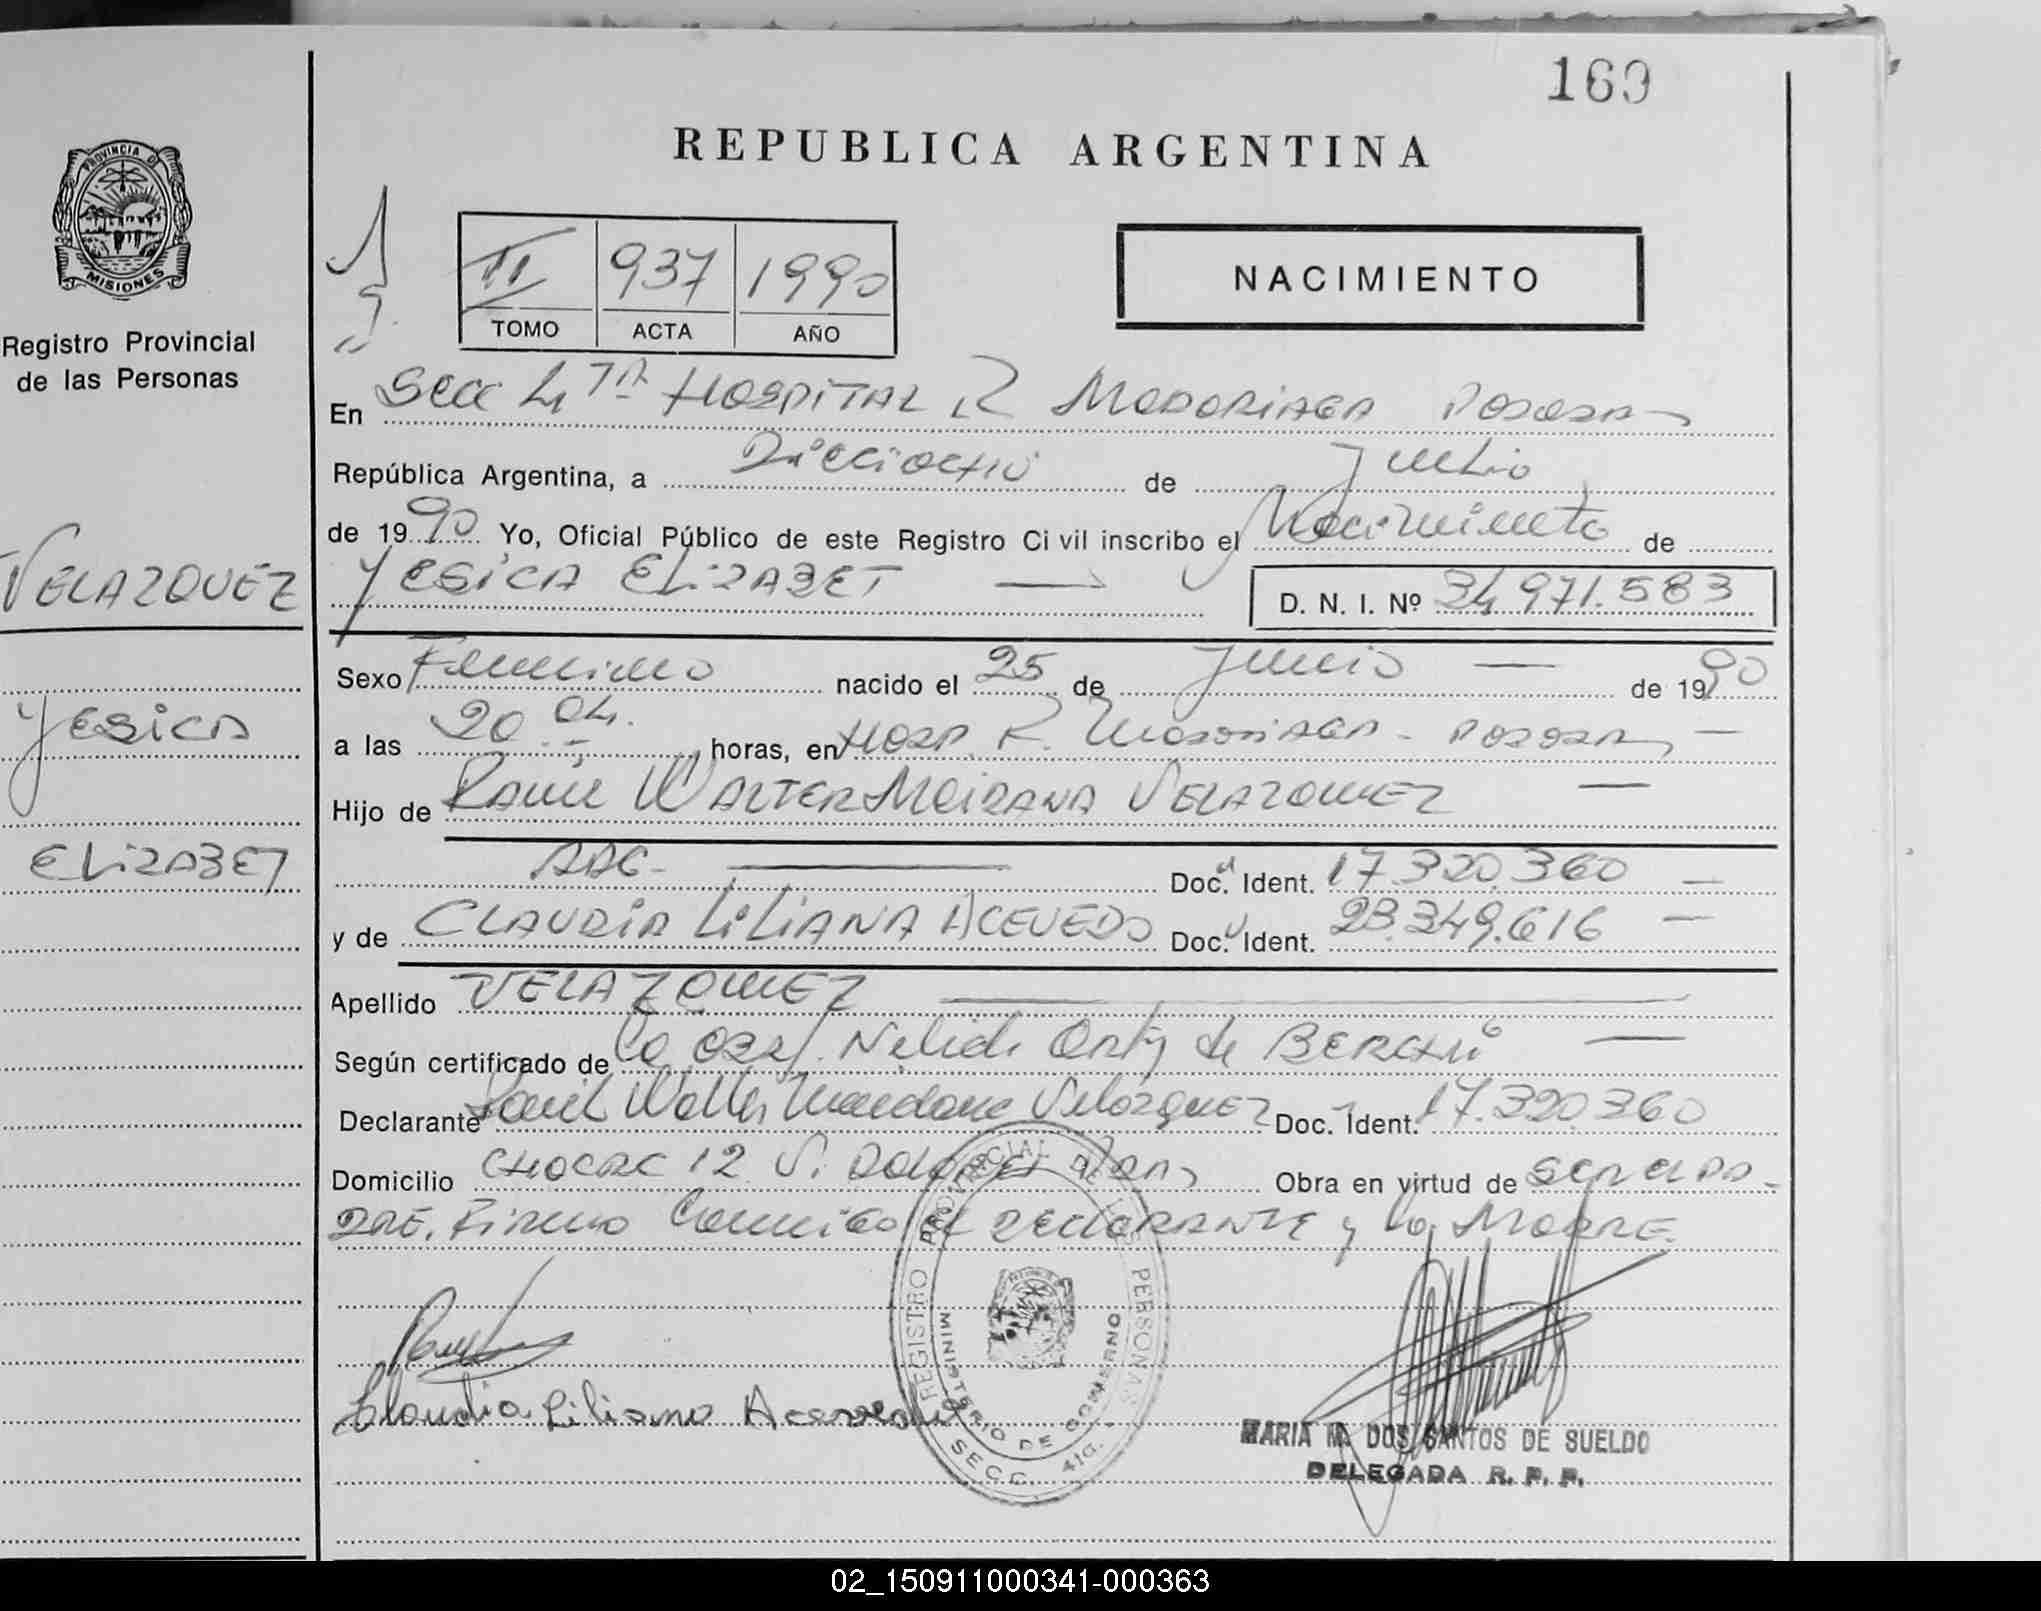 169
REPUBLICA ARGENTINA
PROVINCIA DE
MISIONES
Registro Provincial
de las Personas
II 937 1990
TOMO ACTA AÑO
NACIMIENTO
En Secc 4ta HOSPITAL R MADARIAGA POSADAS
República Argentina, a Dieciocho de Julio
de 1990 Yo, Oficial Público de este Registro Civil inscribo el Nacimiento de
YESICA ELIZABET D. N. I. Nº 34.971.583
VELAZQUEZ
YESICA
ELIZABET
Sexo Femenino nacido el 25 de Junio de 1990
a las 20 04. horas, en HOSP. R. MADARIAGA - POSADAS
Hijo de WALTER VELAZQUEZ
ARG- Doc. Ident. 17.320.360
y de CLAUDIA LILIANA ACEVEDO Doc. Ident. 23.349.616
Apellido VELAZQUEZ
Según certificado de la Obst. Nelida Ortiz de BERCHI
Declarante Velazquez Doc. Ident. 17.320.360
Domicilio CHACRA 12 Obra en virtud de SER EL PA-
DRE. Firma Conmigo el DECLARANTE y la MADRE.
REGISTRO PROVINCIAL DE LAS PERSONAS
MINISTERIO DE GOBIERNO
SECC. 4ta.
Claudia Liliana Acevedo
MARIA M. DOS SANTOS DE SUELDO
DELEGADA R. P. P.
02_150911000341-000363